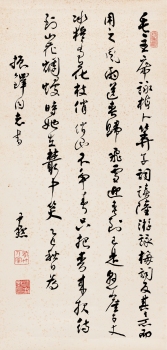 毛主席詠梅卜算子詞讀陸游詠梅詞反其意而
用之風雨送春歸飛雪迎春到已是懸崖百丈
冰猶有花枝俏俏也不爭春只把春來報待
到山花爛熳時她在叢中笑乙巳秋日為
振鐸同志書
尹默